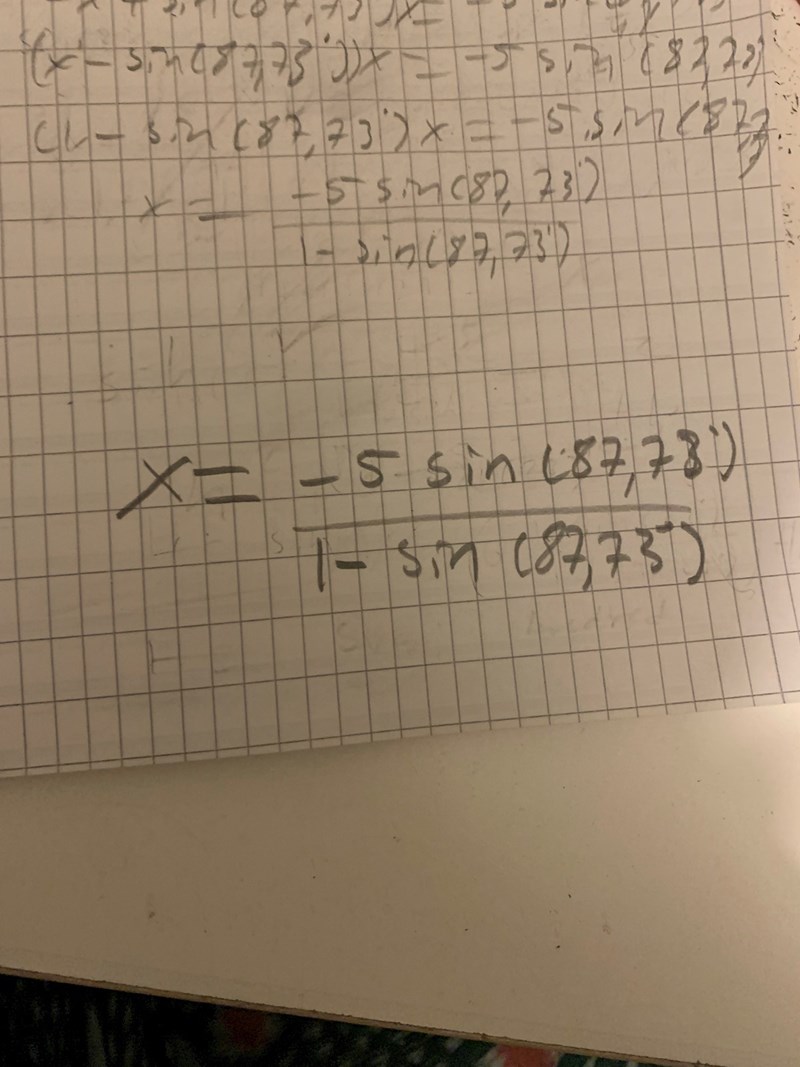 (x - sin(87,73°))x = -5 sin (87,73
(1 - sin (87,73°)x = -5 sin (87,7
x = -5 sin(87,73°)
1 - sin(87,73°)
x = -5 sin (87,73°)
1 - sin (87,73°)